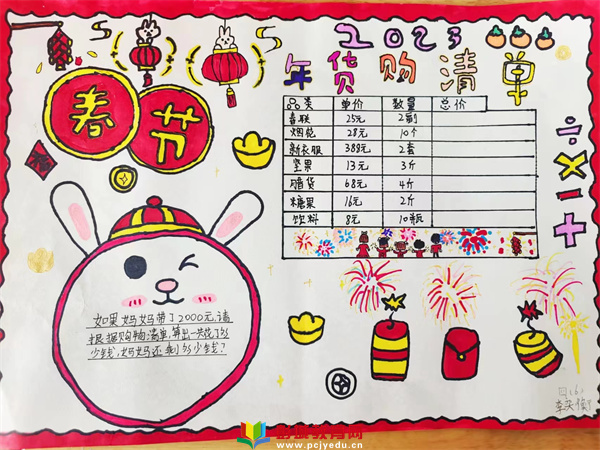 2023
年货购清单
春节
品类 单价 数量 总价
春联 25元 2副
烟花 28元 10个
新衣服 388元 2套
坚果 13元 3斤
腊货 68元 4斤
糖果 16元 2斤
饮料 8元 10瓶
÷×-+
如果妈妈带了2000元,请
根据购物清单,算出一共花了多
少钱,妈妈还剩多少钱?
四(6)
www.pcjyedu.cn